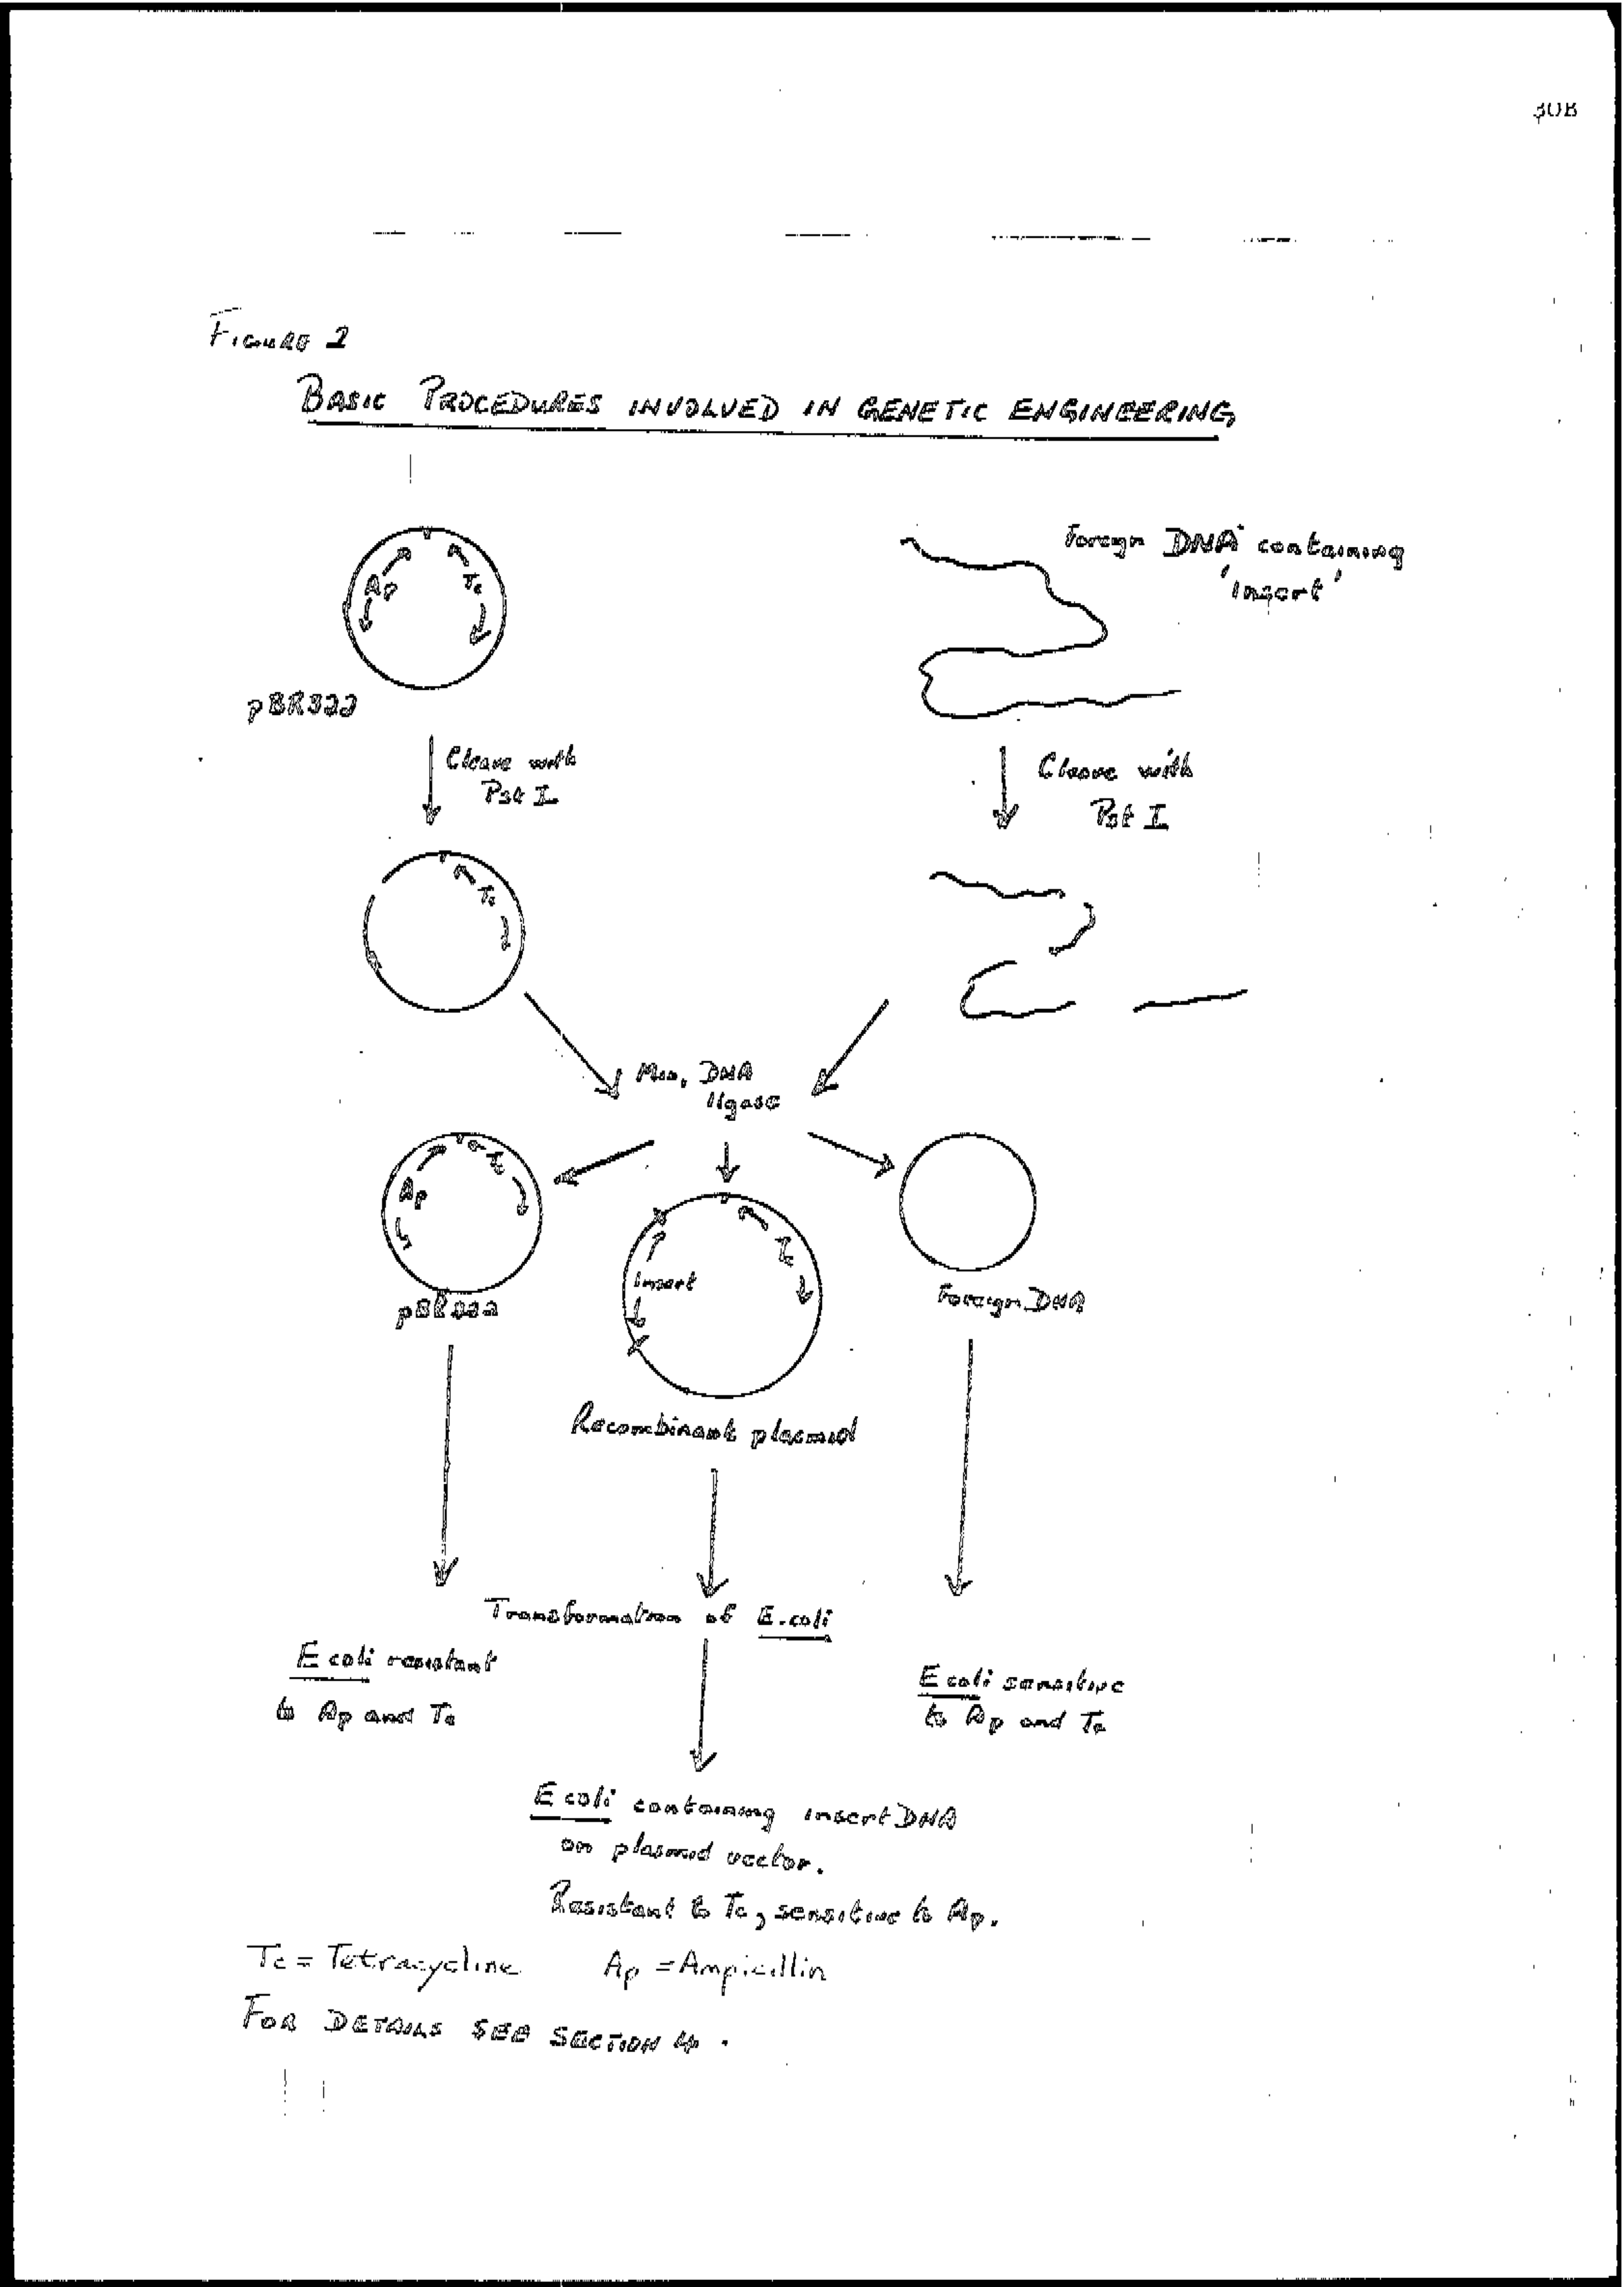 30B
FIGURE 2
BASIC PROCEDURES INVOLVED IN GENETIC ENGINEERING
Foreign DNA containing
'insert'
Ap
Tc
pBR322
Cleave with
Pst I
Cleave with
Pst I
Tc
Mix, DNA
ligase
Ap
Tc
Insert
Tc
pBR322
Foreign DNA
Recombinant plasmid
Transformation of E.coli
E coli resistant
to Ap and Tc
E coli sensitive
to Ap and Tc
E coli containing insert DNA
on plasmid vector.
Resistant to Tc, sensitive to Ap.
Tc = Tetracycline Ap = Ampicillin
FOR DETAILS SEE SECTION 4.